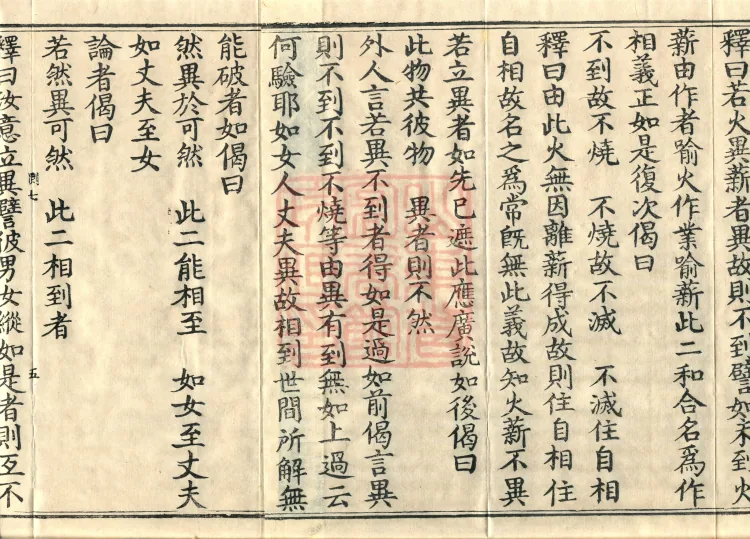 釋曰若火異薪者異故則不到譬如未到火
薪由作者喻火作業喻薪此二和合名爲作
相義正如是復次偈曰
不到故不燒　不燒故不滅　不滅住自相
釋曰由此火無因離薪得成故則住自相住
自相故名之爲常旣無此義故知火薪不異
若立異者如先已遮此應廣說如後偈曰
此物共彼物　異者則不然
外人言若異不到者得如是過如前偈言異
則不到不到不燒等由異有到無如上過云
何驗耶如女人丈夫異故相到世間所解無
能破者如偈曰
然異於可然　此二能相至　如女至丈夫
如丈夫至女
論者偈曰
若然異可然　此二相到者
釋曰汝意立異譬彼男女縱如是者則互不
五